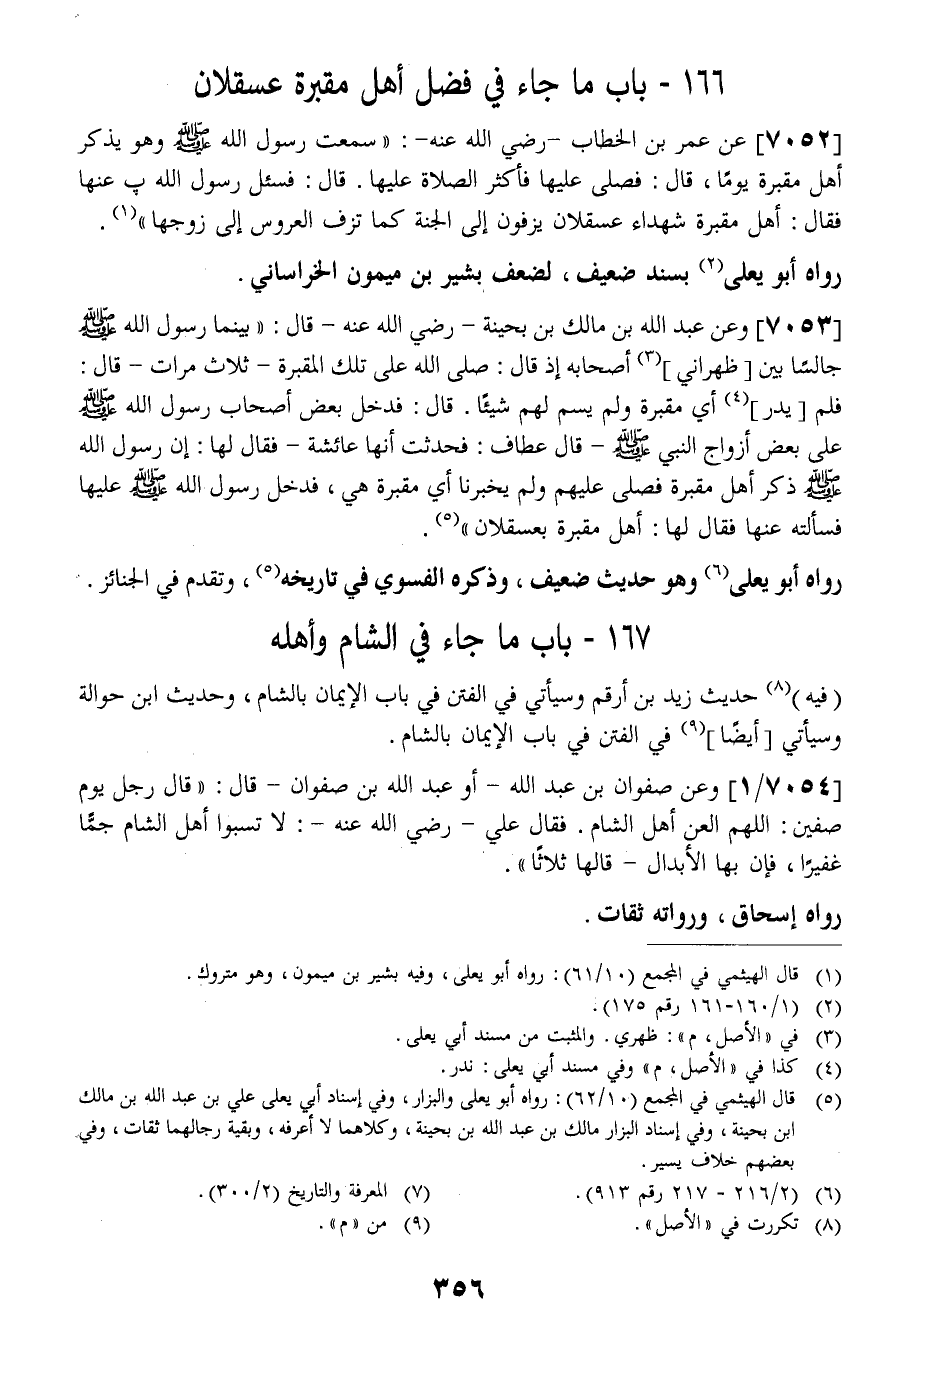 ١٦٦ - باب ما جاء في فضل أهل مقبرة عسقلان
[٧٠٥٢] عن عمر بن الخطاب -رضي الله عنه- : «سمعت رسول الله ﷺ وهو يذكر
أهل مقبرة يومًا ، قال : فصلى عليها فأكثر الصلاة عليها . قال : فسئل رسول الله پ عنها
فقال : أهل مقبرة شهداء عسقلان يزفون إلى الجنة كما تزف العروس إلى زوجها»(١) .
رواه أبو يعلى(٢) بسند ضعيف ، لضعف بشير بن ميمون الخراساني .
[٧٠٥٣] وعن عبد الله بن مالك بن بحينة - رضي الله عنه - قال : «بينما رسول الله ﷺ
جالسًا بين [ظهراني](٣) أصحابه إذ قال : صلى الله على تلك المقبرة - ثلاث مرات - قال :
فلم [يدر](٤) أي مقبرة ولم يسم لهم شيئًا . قال : فدخل بعض أصحاب رسول الله ﷺ
على بعض أزواج النبي ﷺ - قال عطاف : فحدثت أنها عائشة - فقال لها : إن رسول الله
ﷺ ذكر أهل مقبرة فصلى عليهم ولم يخبرنا أي مقبرة هي ، فدخل رسول الله ﷺ عليها
فسألته عنها فقال لها : أهل مقبرة بعسقلان»(٥) .
رواه أبو يعلى(٦) وهو حديث ضعيف ، وذكره الفسوي في تاريخه(٥) ، وتقدم في الجنائز .
١٦٧ - باب ما جاء في الشام وأهله
(فيه)(٨) حديث زيد بن أرقم وسيأتي في الفتن في باب الإيمان بالشام ، وحديث ابن حوالة
وسيأتي [أيضًا](٩) في الفتن في باب الإيمان بالشام .
[١/٧٠٥٤] وعن صفوان بن عبد الله - أو عبد الله بن صفوان - قال : «قال رجل يوم
صفين : اللهم العن أهل الشام . فقال علي - رضي الله عنه - : لا تسبوا أهل الشام جمًّا
غفيرًا ، فإن بها الأبدال - قالها ثلاثًا» .
رواه إسحاق ، ورواته ثقات .
(١) قال الهيثمي في المجمع (٦١/١٠) : رواه أبو يعلى ، وفيه بشير بن ميمون ، وهو متروك .
(٢) (١/ ١٦٠-١٦١ رقم ١٧٥) .
(٣) في «الأصل ، م» : ظهري . والمثبت من مسند أبي يعلى .
(٤) كذا في «الأصل ، م» وفي مسند أبي يعلى : ندر .
(٥) قال الهيثمي في المجمع (٦٢/١٠) : رواه أبو يعلى والبزار ، وفي إسناد أبي يعلى علي بن عبد الله بن مالك
ابن بحينة ، وفي إسناد البزار مالك بن عبد الله بن بحينة ، وكلاهما لا أعرفه ، وبقية رجالهما ثقات ، وفي
بعضهم خلاف يسير .
(٦) (٢/ ٢١٦ - ٢١٧ رقم ٩١٣) . (٧) المعرفة والتاريخ (٢/ ٣٠٠) .
(٨) تكررت في «الأصل» . (٩) من «م» .
٣٥٦